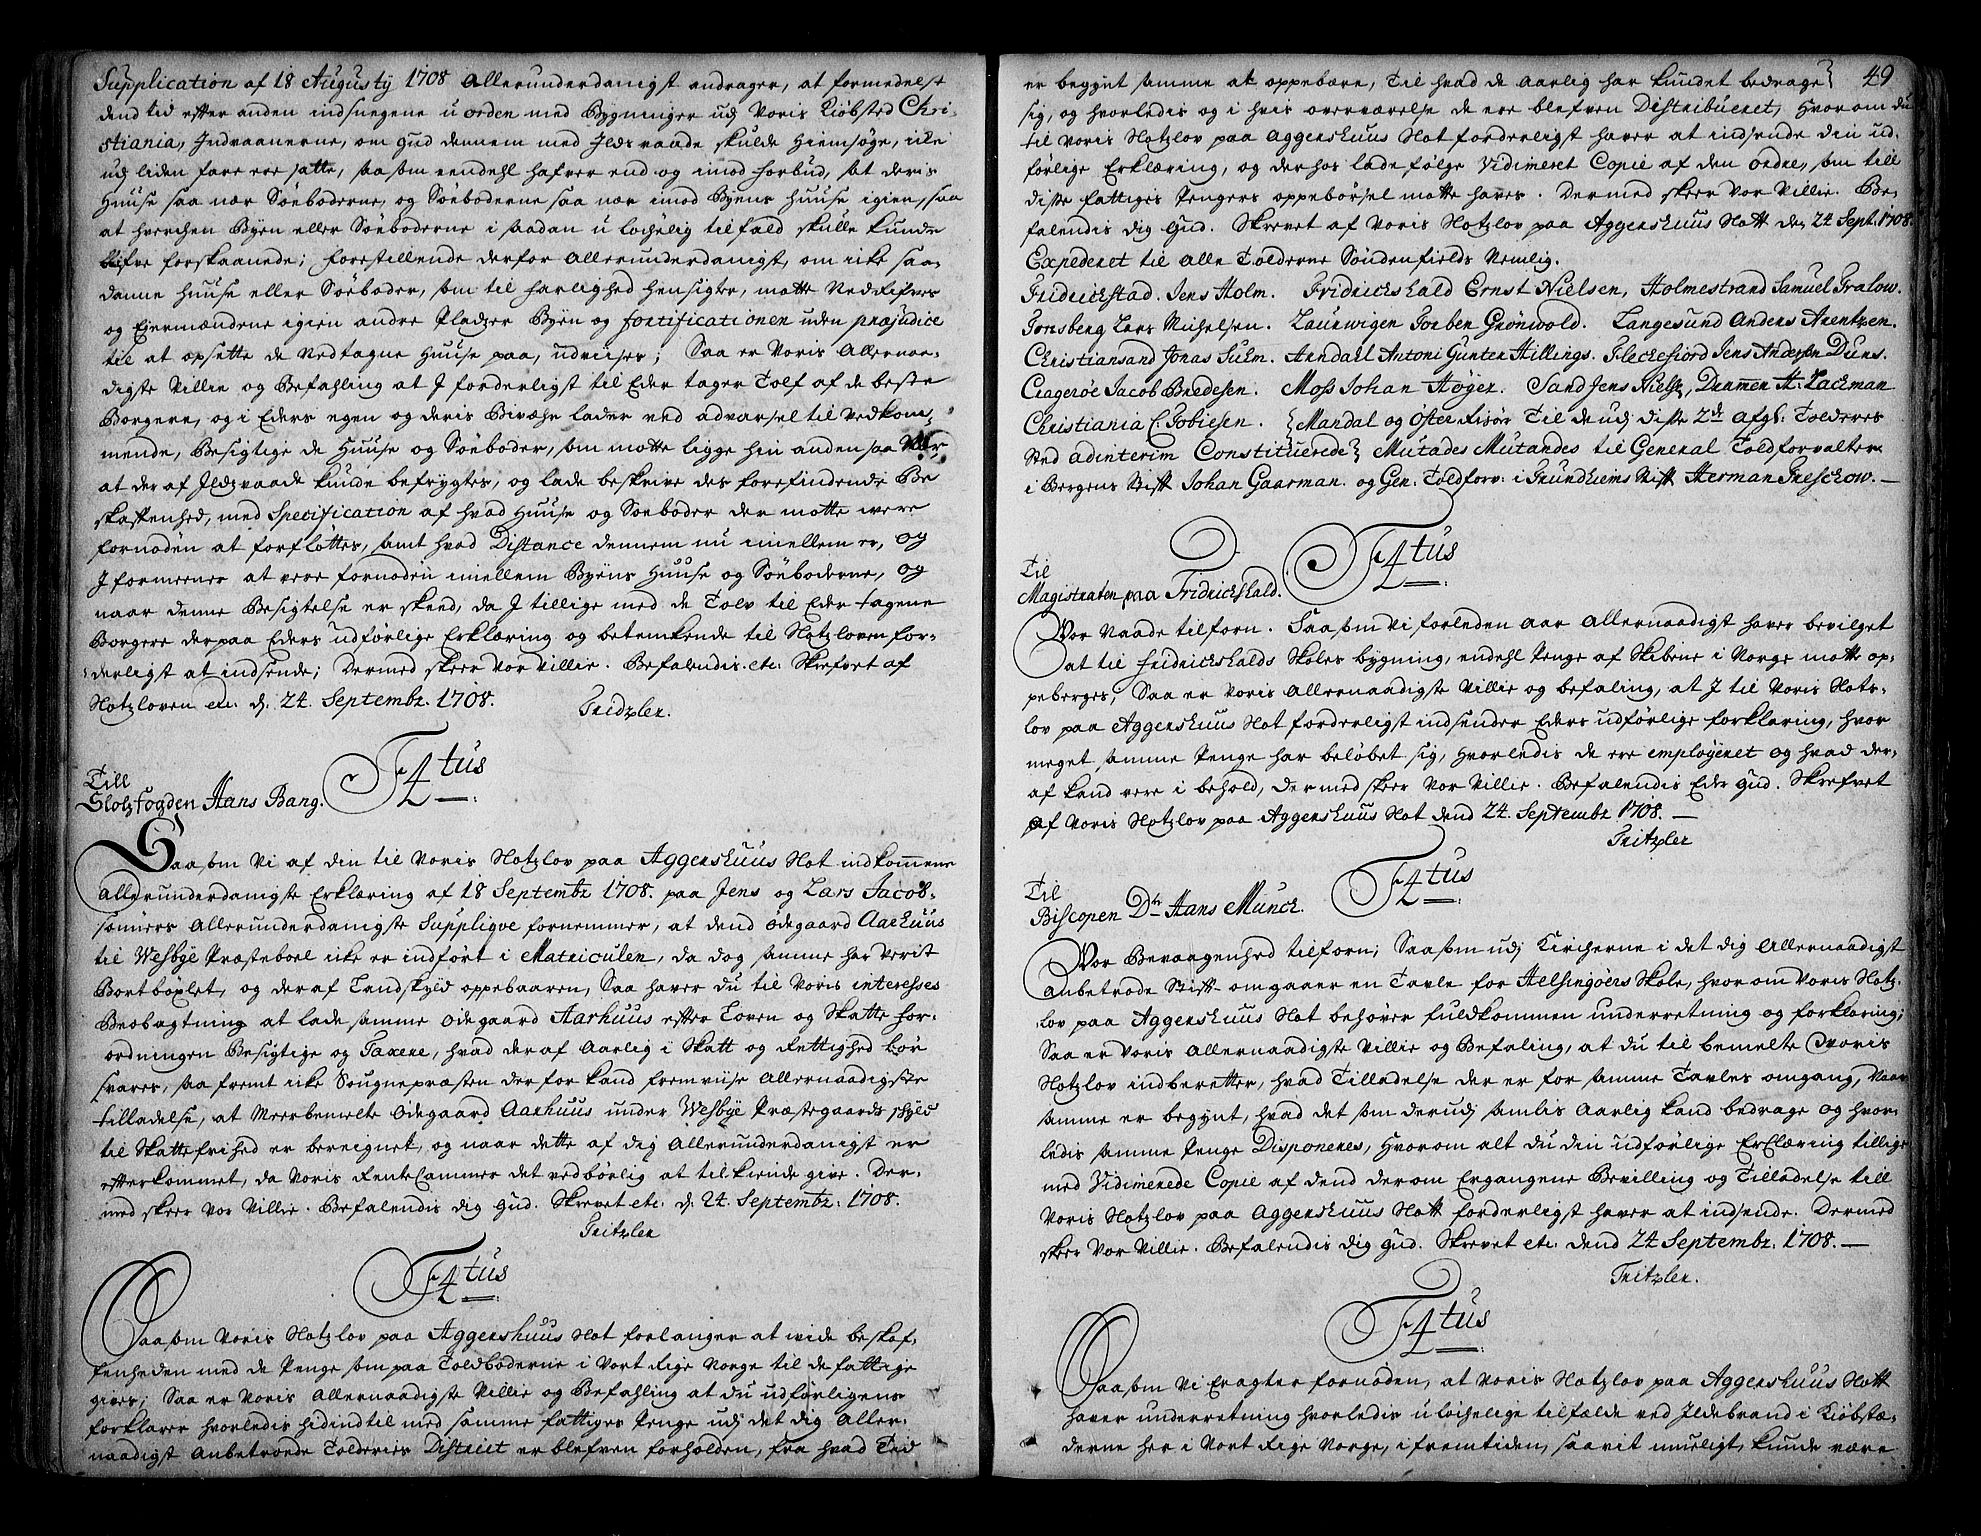 Supplication af 18 Augusty 1708 allerunderdanigst andrager, at formedelst
dend tid efter anden indsnegene u orden med Bygninger udj Voris Kiøbsted Chri-
stiania, Indvaanerne, om gud dennem med Ildsvaade skulde hiemsøge, icke
udj liden fare ere satte, saasom eendehl hafver end og imod forbud, sat deris
Huuse saa nær Søeboderne, og Søeboderne saa nær imod Byens Huuse igien, saa
at hverchen Byen eller Søeboderne i saadan u lochelig tilfald skulle kunde
blifve forskaanede; forestillende derfor allerunderdanigst, om icke saa-
danne Huuse eller Søeboder, som til farlighed hensigter, motte Nedrifves
og Ejermændene igien andre Pladzer Byen og fortificationen uden præjudice
til at opsette de Nedtagne Huuse paa, udviises; Saa er Voris Allernaa-
digste Villie og Befahling at J forderligst til Eder tager Tolf af de beste
Borgere, og i Eders egen og deris Bivæhr lader ved advarsel til Vedkom-
mende, Besigtige de Huuse og Søeboder, som motte ligge hin anden saa Nær
at der af Ildsvaade kunde befrygtes, og lade beskrive des forefindende Be
skaffenhed, med Specification af hvad Huuse og Søeboder der motte were
fornøden at forfløttes, samt hvad Distance dennem nu imellem er, og
J formeener at vere fornøden imellem Byens Huuse og Søeboderne, og
naar denne Besigtelse er skeed, da J tillige med de Tolv til Eder tagene
Borgere derpaa Eders udførlige Erklæring og betenkende til Slotzloven for-
derligst at indsende; Dermed skeer vor Villie. Befalendis. etc. Skrefvet af
Slotzloven etc. d. 24. Septembr. 1708.
Tritzler.
F4tus
Till
Slotzfogden Hans Bang.
Saasom Vi af din til Voris Slotzlov paa Aggershuus Slot indkommene
allerunderdanigste Erklæring af 18 Septembr 1708. paa Jens og Lars Jacob-
sønners Allerunderdanigste Suppliqve fornemmer, at dend ødegaard Aarhuus
til Wesbye Præsteboel icke er indført i Matriculen, da dog samme har verit
Bortbøxlet, og deraf Landskyld oppebaaren, Saa haver du til Voris interesses
Beobagtning at lade samme ødegaard Aarhuus efter Loven og Skatte for-
ordningen Besigtige og Taxere, hvad deraf Aarlig i Skatt og Rettighed bør
svares, saa fremt icke Sougnepræsten derfor kand fremviise Allernaadigste
tilladelse, at Meerbemelte ødegaard Aarhuus under Wesbye Præstegaards skyld
til Skattefrihed er bereignet, og naar dette af dig Allerunderdanigst er
efterkommet, da Voris Rente Cammer det vedbørlig at tilkiende give. Der-
med skeer vor Villie. Befalendis dig gud. Skrevet etc. d. 24. Septembr. 1708.
Tritzler
F4tus
Saasom Voris Slotzlov paa Aggershuus Slot forlanger at vide beskaf-
fenheden med de Penge som paa Toldboderne i Vort Rige Norge til de fattige
gives; Saa er Voris Allernaadigste Villie og Befahling at du udførligens
forklarer hvorledis hidindtil med samme fattiges Penge udj det dig Aller-
naadigst Anbetroede Tolderies District er blefven forholden, fra hvad Tid
49
er begynt samme at oppebære, Til hvad de Aarlig har kundet bedrage
sig, og hvorledis og i hvis overværelse de ere blefven Distribueret, Hvorom du
til Voris Slotzlov paa Aggershuus Slot forderligst haver at indsende din ud-
førlige Erklæring, og derhos lade følge Vidimeret Copie af den ordre, som till
disse fattiges Pengers oppebørsel motte haves. Dermed skeer Vor Villie. Be-
falendis dig Gud. Skrevet af Voris Slotzlov paa Aggershuus Slott den 24 Sept. 1708.
Expederet til Alle Tolderne Søndenfields Nemlig.
Fridrichstad. Jens Holm. Fridrichshald Ernst Nielsen, Holmestrand Samuel Tralow.
Tonsberg Lars Michelsen. Laurwigen Torben Grønwold. Langesund Anders Arentzen.
Christiansand Jonas Suhm. Arndahl Antoni Gunter Hillings. Fleckefiord Jens Andersen Duns.
Cragerøe Jacob Bredesen. Moss Johan Høyer. Sand Jens Niels., Drammen H. Lackman
Christiania C. Tobiesen. Mandal og Øster Risør Til de udj disse 2de Afg: Tolderes
sted ad interim Constituerede Mutades Mutandes til General Toldforvalter
i Bergens Stift Johan Gaarman. og Gen: Toldforv: i Trundhiems Stift Herman Treschow. —
F4tus
Til
Magistraten paa Fridrichshald.
Vor Naade tilforn. Saasom Vi forleden Aar Allernaadigst haver bevilget
at til Fridrichshalds Skoles bygning, eendehl Penge af Skibene i Norge motte op-
peberges, Saa er Voris Allernaadigste Villie og befaling, at J til Voris Slots-
lov paa Aggershuus Slot forderligst indsender Eders udførlige forklaring, hvor
meget samme Penge har beløbet sig, Hvorledis de ere employeret og hvad der-
af kand vere i behold, Dermed skeer Vor Villie. Befalendis Eder Gud. Skrefvet
af Voris Slotzlov paa Aggershuus Slot dend 24. Septembr 1708. —
Tritzler
F4tus
Til
Biscopen Dr Hans Munck.
Vor Bevaagenhed tilforn; Saasom udj Kircherne i det dig Allernaadigst
anbetrode Stift omgaaer en Tavle for Helsingøers Skole, hvorom Voris Slotz-
lov paa Aggershuus Slot behøver fuldkommen underretning og forklaring;
Saa er Voris Allernaadigste Villie og Befaling, at du til bemelte Voris
Slotzlov indberetter, hvad Tilladelse der er for samme Tavles omgang, Naar
samme er begynt, hvad det som derudj samlis Aarlig kand bedrage og hvor-
ledis samme Penge Disponeres, Hvorom alt du din udførlige Erclæring tillige
med Vidimerede Copie af dend derom Ergangene Bevilling og Tilladelse till
Voris Slotzlov paa Aggershuus Slott forderligst haver at indsende. Dermed
skeer Vor Villie. Befalendis dig gud. Skrevet etc. dend 24 Septembr. 1708. —
Tritzler.
F4tus
Saasom Vi Eragter fornøden, at Voris Slotzlov paa Aggershuus Slott
haver underretning hvorledis ulochelige tilfælde ved Ildebrand i Kiøbstæ-
derne her i Vort Rige Norge, i fremtiden, saavit mueligt, kunde være